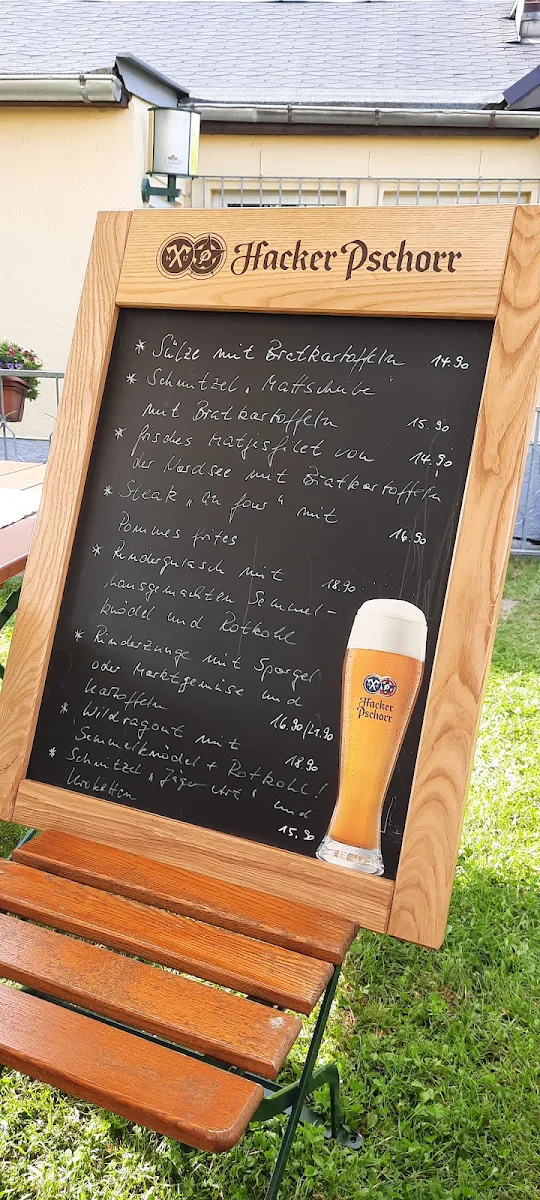 Hacker Pschorr
* Sülze mit Bratkartoffeln 14.90
* Schnitzel "Mattscheibe"
mit Bratkartoffeln 15.90
* frisches Matjesfilet von 14,90
der Nordsee mit Bratkartoffeln
* Steak "au four" mit
Pommes frites 16.90
* Rindergulasch mit 18.90
hausgemachten Semmel-
knödel und Rotkohl
* Rinderzunge mit Spargel
oder Marktgemüse und
Kartoffeln 16.90/21.90
* Wildragout mit
Semmelknödel + Rotkohl! 18.90
* Schnitzel "Jäger Art" und
Kroketten 15.90
Hacker
Pschorr